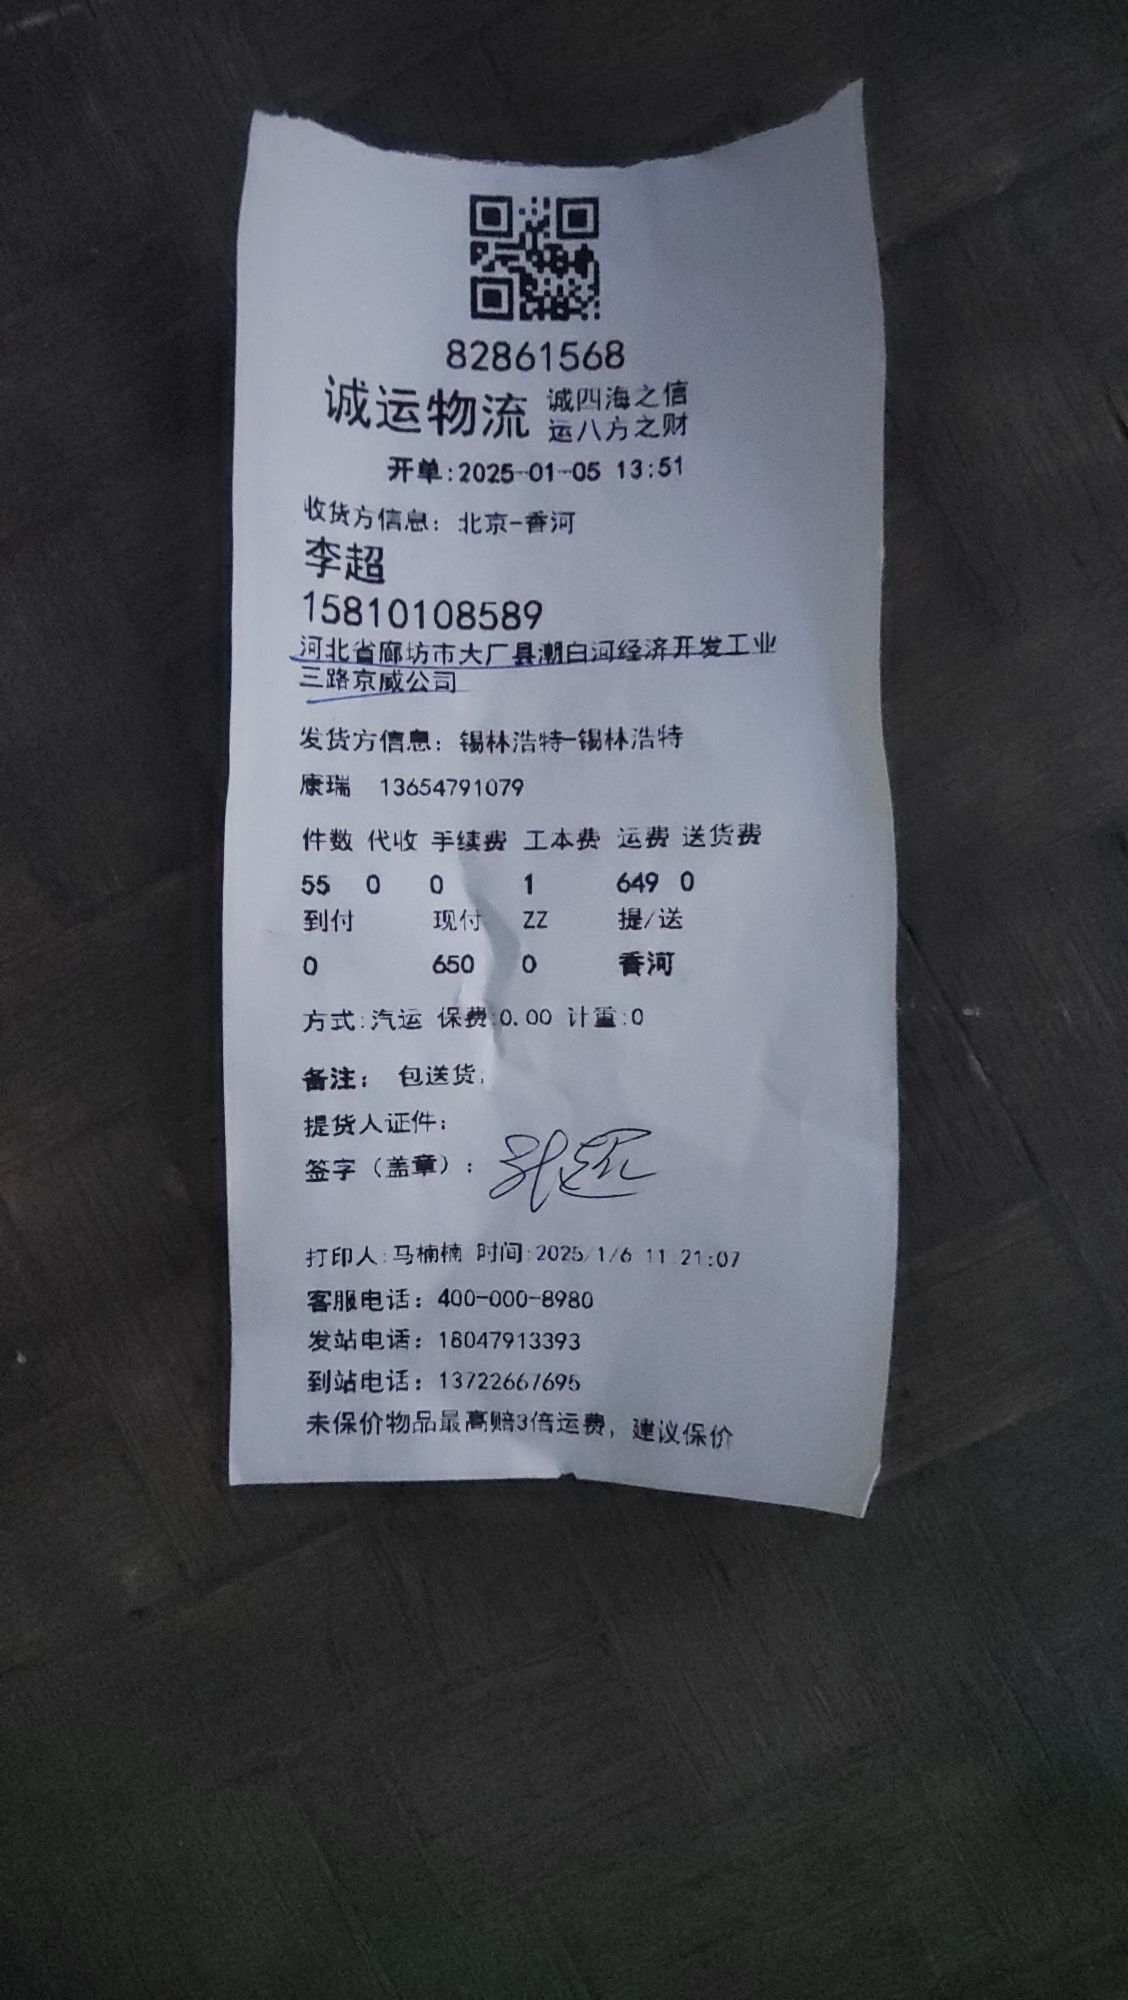 82861568
诚运物流 诚四海之信
运八方之财
开单:2025-01-05 13:51
收货方信息：北京-香河
李超
15810108589
河北省廊坊市大厂县潮白河经济开发工业
三路京威公司
发货方信息：锡林浩特-锡林浩特
康瑞 13654791079
件数 代收 手续费 工本费 运费 送货费
55 0 0 1 649 0
到付 现付 ZZ 提/送
0 650 0 香河
方式:汽运 保费:0.00 计重:0
备注： 包送货,
提货人证件：
签字（盖章）：
打印人:马楠楠 时间:2025/1/6 11:21:07
客服电话：400-000-8980
发站电话：18047913393
到站电话：13722667695
未保价物品最高赔3倍运费，建议保价